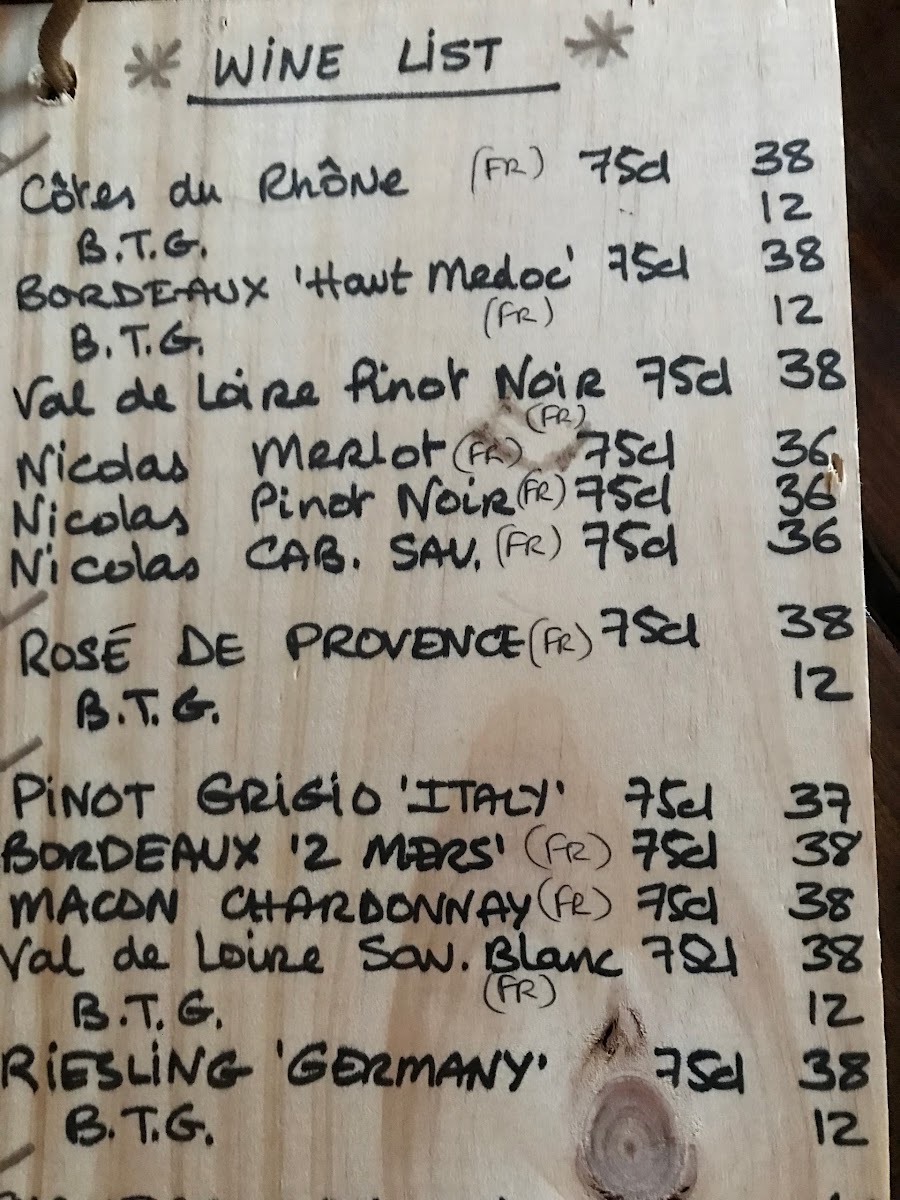 * WINE LIST *
Côtes du Rhône (FR) 75cl 38
B.T.G. 12
BORDEAUX 'Haut Medoc' 75cl 38
(FR)
B.T.G. 12
Val de Loire Pinot Noir 75cl 38
(FR)
Nicolas Merlot (FR) 75cl 36
Nicolas Pinot Noir (FR) 75cl 36
Nicolas CAB. SAV. (FR) 75cl 36
ROSÉ DE PROVENCE (FR) 75cl 38
B.T.G. 12
PINOT GRIGIO 'ITALY' 75cl 37
BORDEAUX '2 MERS' (FR) 75cl 38
MACON CHARDONNAY (FR) 75cl 38
Val de Loire Sav. Blanc 75cl 38
(FR)
B.T.G. 12
RIESLING 'GERMANY' 75cl 38
B.T.G. 12